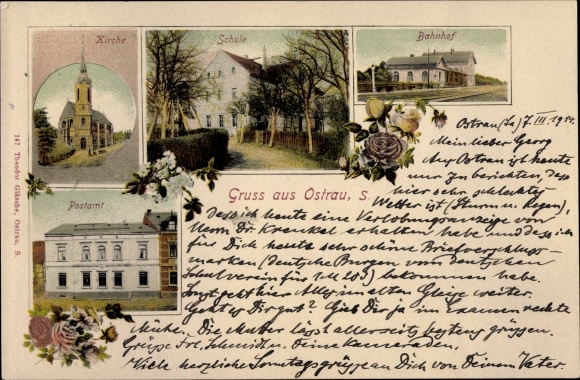 Kirche
Schule
Bahnhof
Postamt
Gruss aus Ostrau, S.
147 Theodor Gläsche, Ostrau, S.
Ostrau (Sa) 7. III. 1914.
Mein lieber Georg
Aus Ostrau ist heute
nur zu berichten, dass
hier sehr schlechtes
Wetter ist (Sturm u. Regen),
Dass ich heute eine Verlobungsanzeige von
Herrn Dr. Krenkel erhalten habe und dass ich
für Dich heute sehr schöne Briefverschluss
marken (deutsche Burgen vom deutschen
Schulverein für 1 M 20 d) bekommen habe.
Sonst geht hier Alles im alten Gleise weiter.
Geht es Dir gut? Gieb Dir ja im Examen rechte
Mühe. Die Mutter lässt allerseits bestens grüssen.
Grüsse Frl. Schmidt u. Deine Kameraden.
Viele herzliche Sonntagsgrüsse an Dich von Deinem Vater.